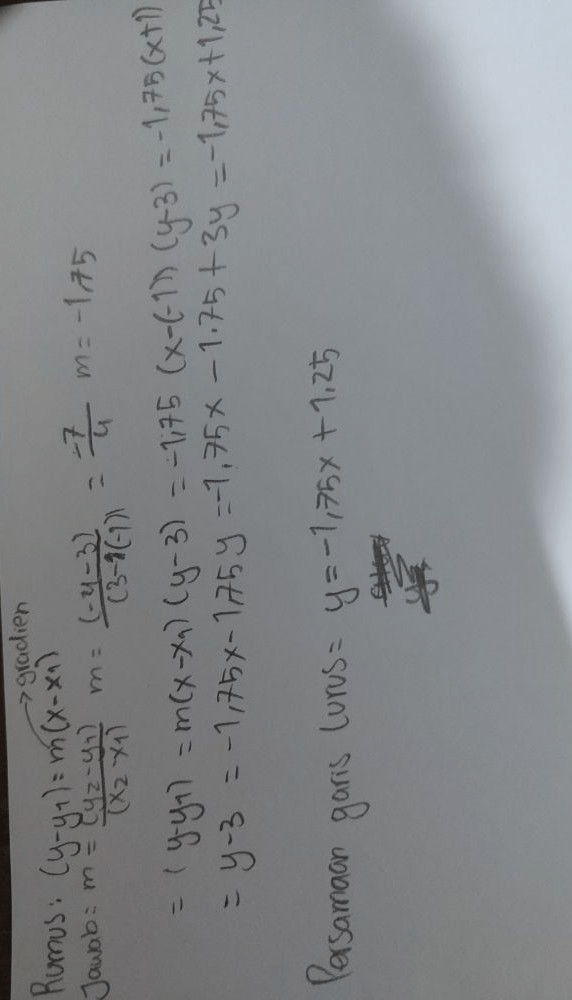 Rumus: (y-y1)=m(x-x1) →gradien
Jawab= m = (y2-y1)/(x2-x1) m= (-4-3)/(3-1(-1)) = -7/4 m=-1,75
= (y-y1) = m(x-x1) (y-3) = -1,75 (x-(-1)) (y-3) = -1,75(x+1)
= y-3 = -1,75x-1,75 y =-1,75x -1.75+3 y =-1,75x+1,25
Persamaan garis lurus= y=-1,75x+1,25